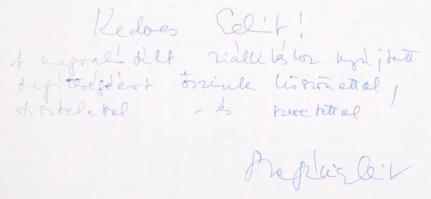 Kedves Edit!
A megvalósult kiállításhoz nyújtott
segítségéért őszinte köszönettel,
tisztelettel – és szeretettel